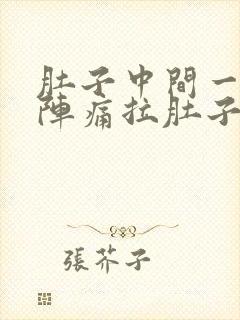 肚子中間一
陣痛拉肚子
張芥子